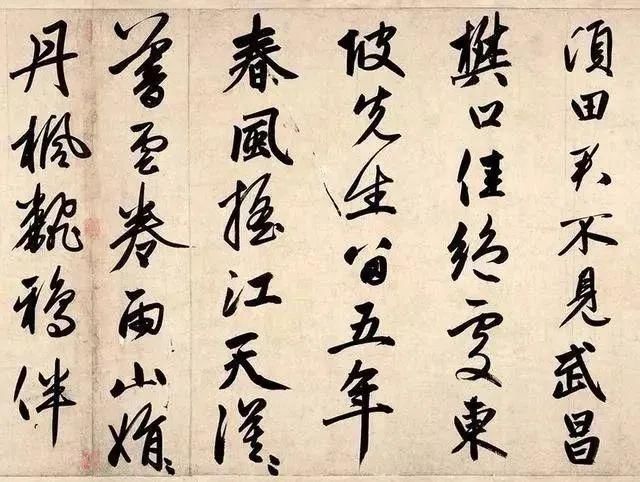 頃田君不見武昌
樊口佳絕處東
坡先生留五年
春風搖江天漠〻
暮雲卷雨山娟〻
丹楓飜鴉伴